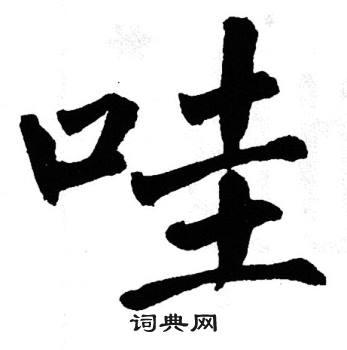 哇
词典网